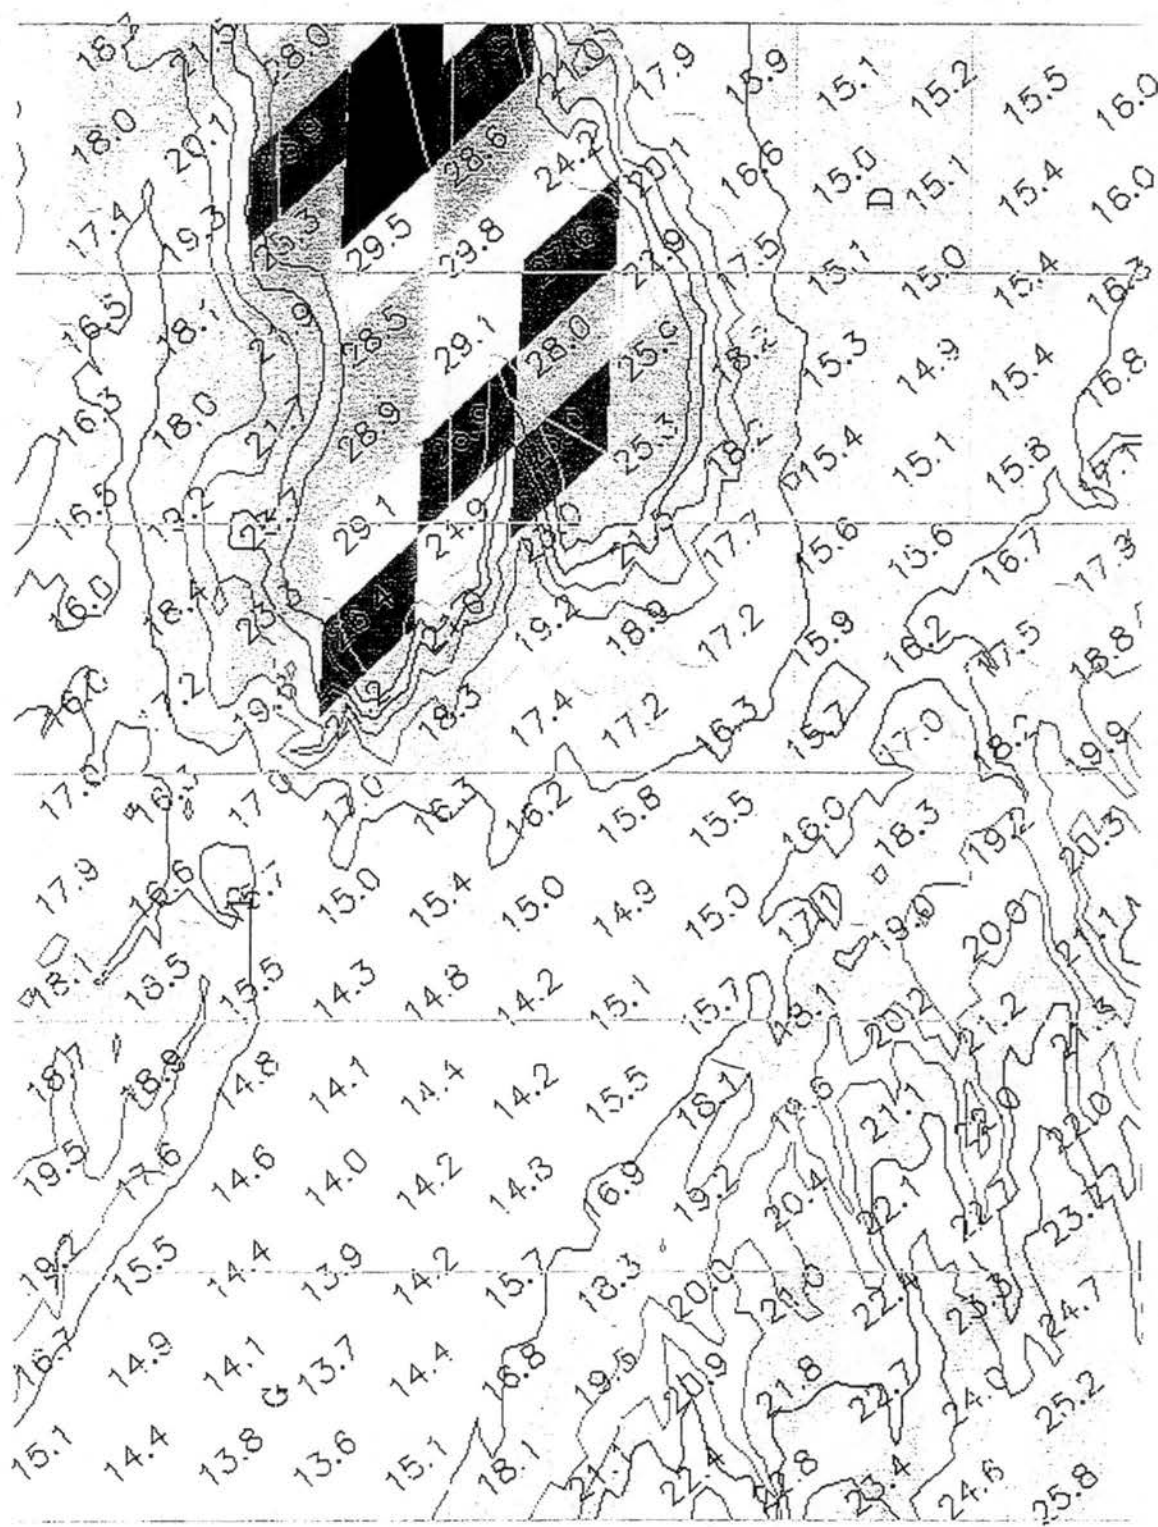 21.5 28.0 21.0 17.9 15.9 15.1 15.2 15.5 16.0
18.0 20.1 28.6 24.2 20.1 16.6 15.0 15.1 15.4 16.0
D
17.4 19.3 25.3 29.5 29.8 22.9 17.5 15.1 15.0 15.4 16.3
16.5 21.9 28.5 29.1 28.0 18.2 15.3 14.9 15.4 16.8
16.3 18.0 21.7 28.9 25.3 18.2 15.4 15.1 15.8 17.1
16.5 19.2 29.1 24.9 17.7 15.6 15.6 16.7 17.3
16.0 18.4 21.0 19.2 18.9 17.2 15.9 16.2 17.5 18.8
16.0 17.2 19.3 18.3 17.4 17.2 16.3 15.7 17.0 18.2 19.9
17.0 17.0 16.3 16.2 15.8 15.5 16.0 18.3 19.2 20.3
17.9 16.6 15.7 15.0 15.4 15.0 14.9 15.0 17.1 19.0 20.0 21.1
18.1 18.5 15.5 14.3 14.8 14.2 15.1 15.7 18.1 20.2 21.2 21.3
18.9 14.8 14.1 14.4 14.2 15.5 18.1 19.6 21.1 22.0 22.0
19.5 17.6 14.6 14.0 14.2 14.3 16.9 19.2 20.4 22.1 22.7
19.2 15.5 14.4 13.9 14.2 15.7 18.3 20.0 21.0 23.3 24.7
16.7 14.9 14.1 13.7 14.4 16.8 19.5 20.9 21.8 22.7 24.0 25.2
G
15.1 14.4 13.8 13.6 15.1 18.1 21.1 22.4 22.8 23.4 24.6 25.8